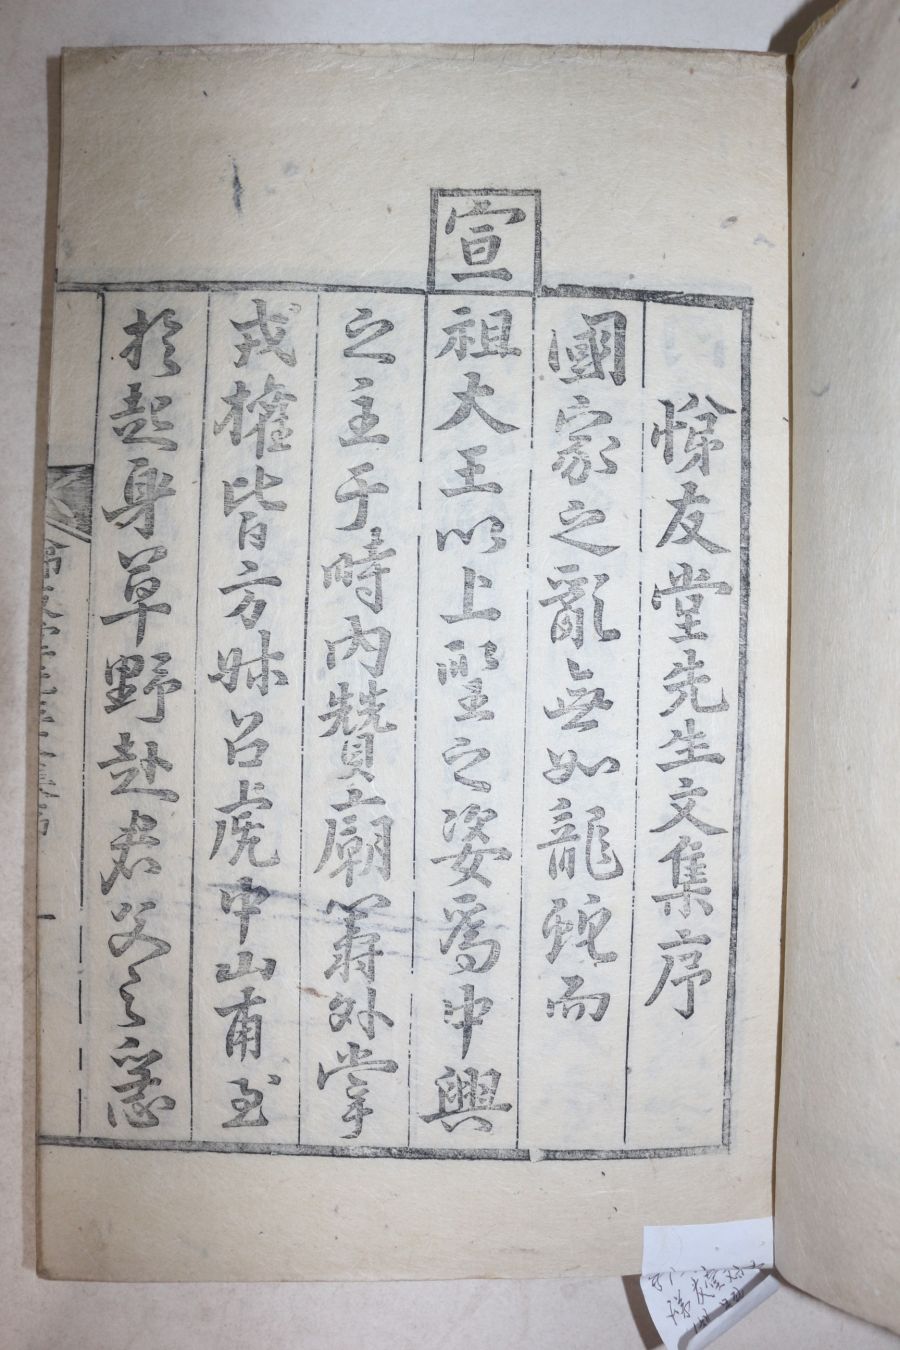 悌友堂先生文集序
國家之亂無如龍蛇而
宣祖大王以上聖之姿爲中興
之主于時內贊廟籌外掌
戎權皆方昧召虎申山甫至
於起身草野赴君父之急